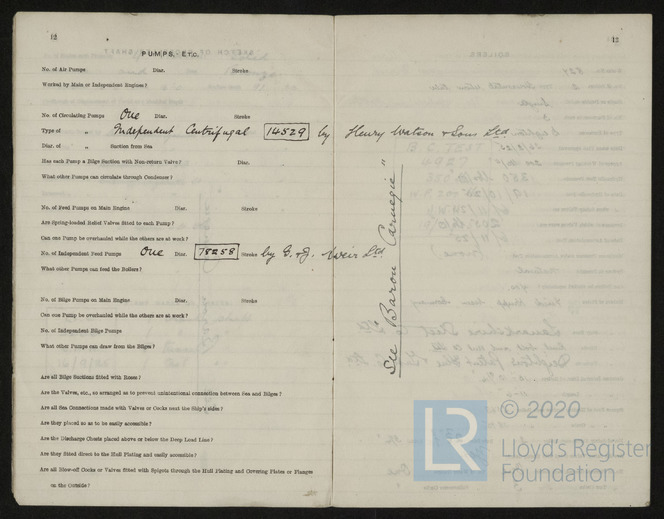 12
13
PUMPS, ETC.
No. of Air Pumps Diar. Stroke
Worked by Main or Independent Engines?
No. of Circulating Pumps One Diar. Stroke
Type of „ Independent Centrifugal 14529 by Henry Watson & Sons Ltd
Diar. of „ Suction from Sea
Has each Pump a Bilge Suction with Non-return Valve? Diar.
What other Pumps can circulate through Condenser?
No. of Feed Pumps on Main Engine Diar. Stroke
Are Spring-loaded Relief Valves fitted to each Pump?
Can one Pump be overhauled while the others are at work?
No. of Independent Feed Pumps One Diar. 78258 Stroke by G. & J. Weir Ltd
What other Pumps can feed the Boilers?
No. of Bilge Pumps on Main Engine Diar. Stroke
Can one Pump be overhauled while the others are at work?
No. of Independent Bilge Pumps
What other Pumps can draw from the Bilges?
Are all Bilge Suctions fitted with Roses?
Are the Valves, etc., so arranged as to prevent unintentional connection between Sea and Bilges?
Are all Sea Connections made with Valves or Cocks next the Ship's sides?
Are they placed so as to be easily accessible?
Are the Discharge Chests placed above or below the Deep Load Line?
Are they fitted direct to the Hull Plating and easily accessible?
Are all Blow-off Cocks or Valves fitted with Spigots through the Hull Plating and Covering Plates or Flanges
on the Outside?
See Baron Carnegie"
© 2020
LR
Lloyd's Register
Foundation